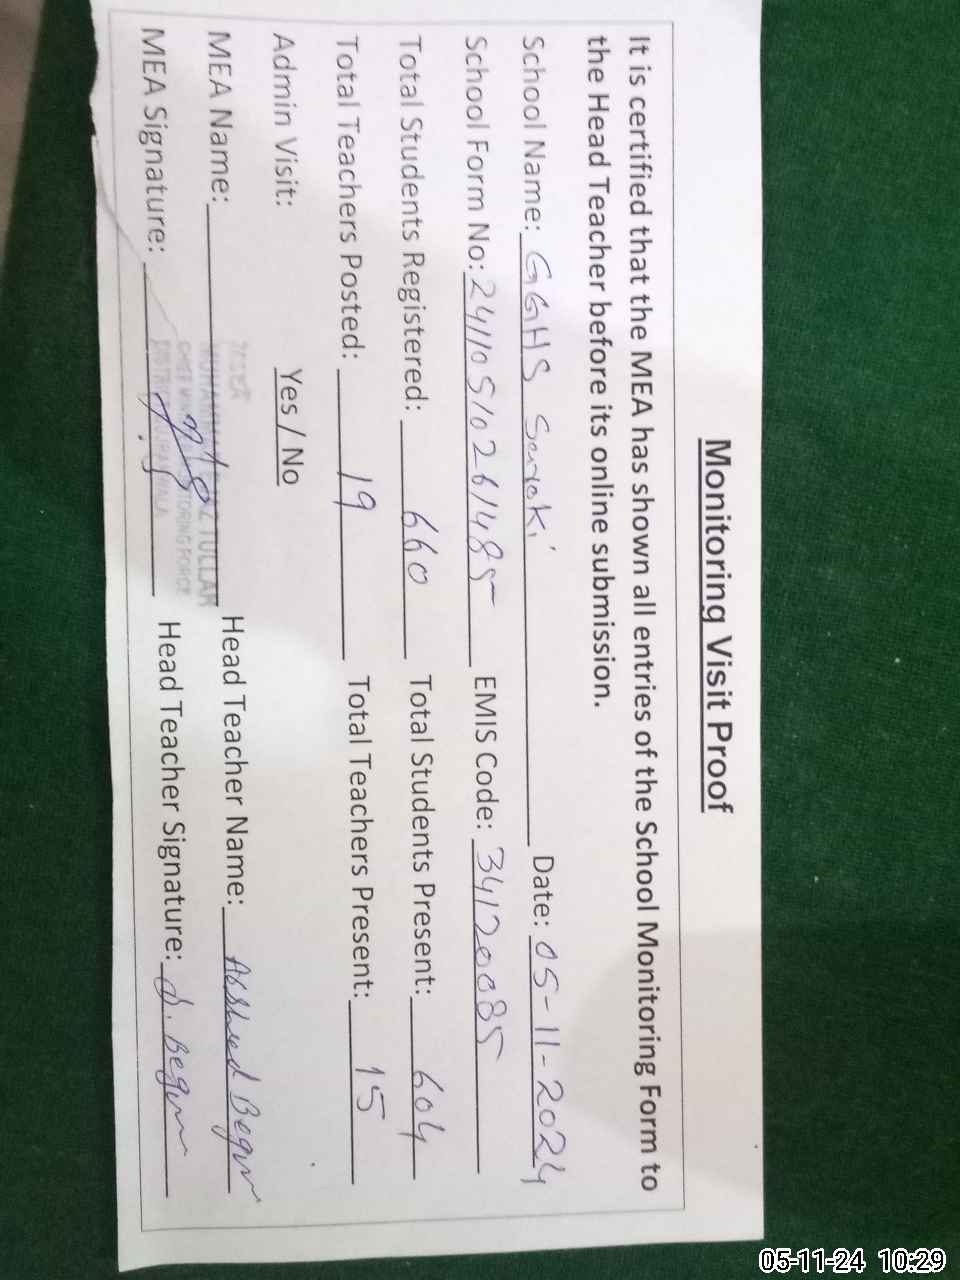 Monitoring Visit Proof
It is certified that the MEA has shown all entries of the School Monitoring Form to
the Head Teacher before its online submission.
School Name: GGHS Saroki Date: 05-11-2024
School Form No: 24110510261485 EMIS Code: 34120085
Total Students Registered: 660 Total Students Present: 604
Total Teachers Posted: 19 Total Teachers Present: 15
Admin Visit: Yes / No
MEA Name: Head Teacher Name: Begum
MEA Signature: Head Teacher Signature: Begum
05-11-24 10:29